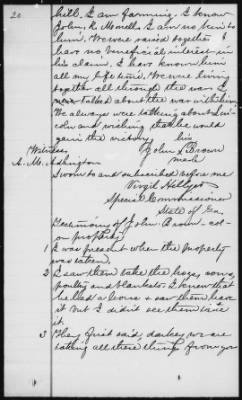 20
hill. I am farming. I know
John R. Monell. I am no kin to
him. We were raised together I
have no beneficial interest in
his claim. I have known him
all my life time. We were living
together all through the war. I
talked about the war with him.
We always were talking about Lin-
coln and wishing that he would
gain the victory his
Witness John X Brown
A. M. Ashington mark
Sworn to and subscribed before me
Virgil Hillyer
Special Commissioner
State of Ga.
Testimony of John Brown col-
on property
1 I was present when the property
was taken.
2 I saw them take the hogs, cows,
poultry and blankets. I know that
he had a horse & saw them have
it but I didn't see them take
it.
3 They first said, darkey we are
taking all these things from you